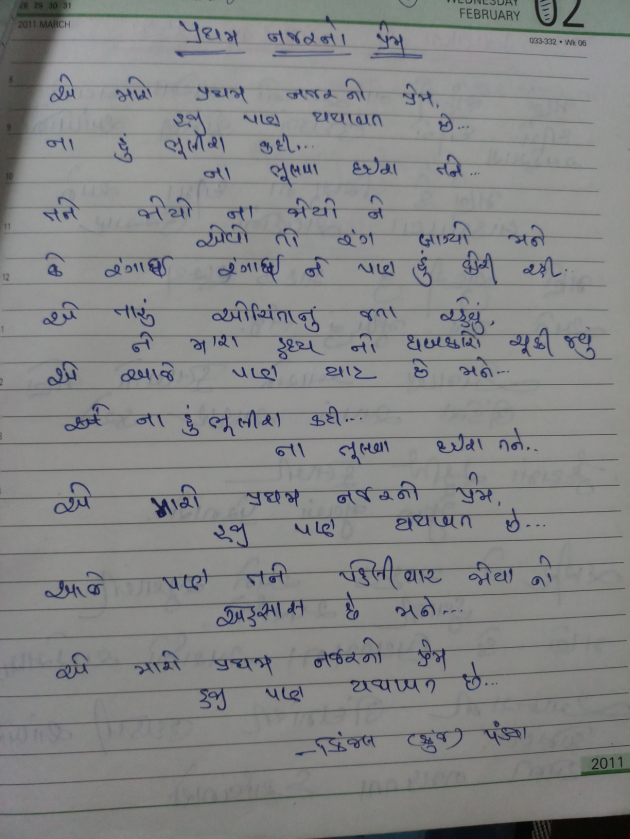 28 29 30 31
2011 MARCH
WEDNESDAY
FEBRUARY
02
033-332 • Wk 06
પ્રથમ નજરનો પ્રેમ
એ મારો પ્રથમ નજરનો પ્રેમ,
હજુ પણ યથાવત છે...
ના હું ભૂલીશ કદી...
ના ભૂલવા દઈશ તને...
તને જોયો ના જોયો ને
એવો તો રંગ લાગ્યો મને
કે રંગાઈ રંગાઈ ને પણ હું કોરી રહી..
એ તારું ઓચિંતાનું જતા રહેવું,
ને મારા હૃદય નો ધબકારો ચૂકી જવું
એ આજે પણ યાદ છે મને...
ના હું ભૂલીશ કદી...
ના ભૂલવા દઈશ તને..
એ મારો પ્રથમ નજરનો પ્રેમ,
હજુ પણ યથાવત છે...
આજે પણ તને પહેલીવાર જોયા નો
અહેસાસ છે મને...
એ મારો પ્રથમ નજરનો પ્રેમ
હજુ પણ યથાવત છે...
- કિંજલ (કુંજ) પંડ્યા
2011